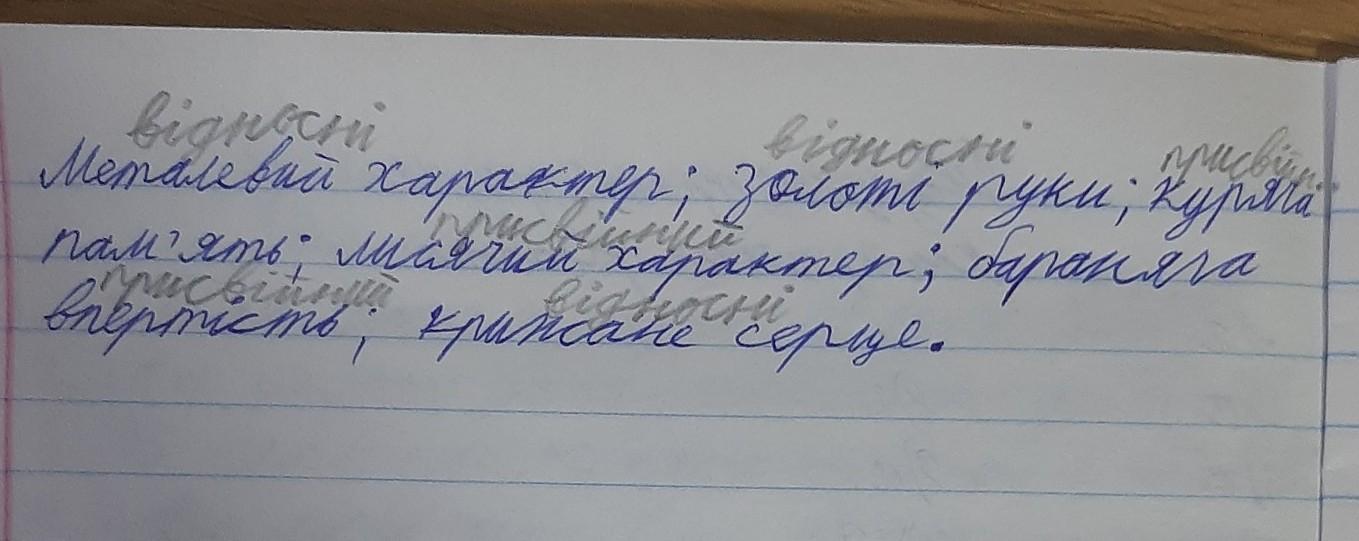 відносні відносні присвійн.
Металевий характер; золоті руки; куряча
присвійний
пам'ять; лисячий характер; бараняча
присвійний відносні
впертість; крижане серце.